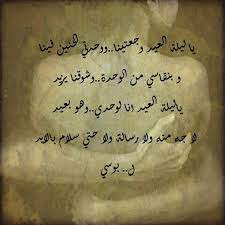 يا ليلة العيد وجعتينا..ووحدني الحنين فينا
و بنقاسي من الوحدة..وشوقنا يزيد
ياليلة العيد انا لوحدي..وهو بعيد
لا جه منه ولا رسالة ولا حتي سلام بالايد
ل.. بوسي